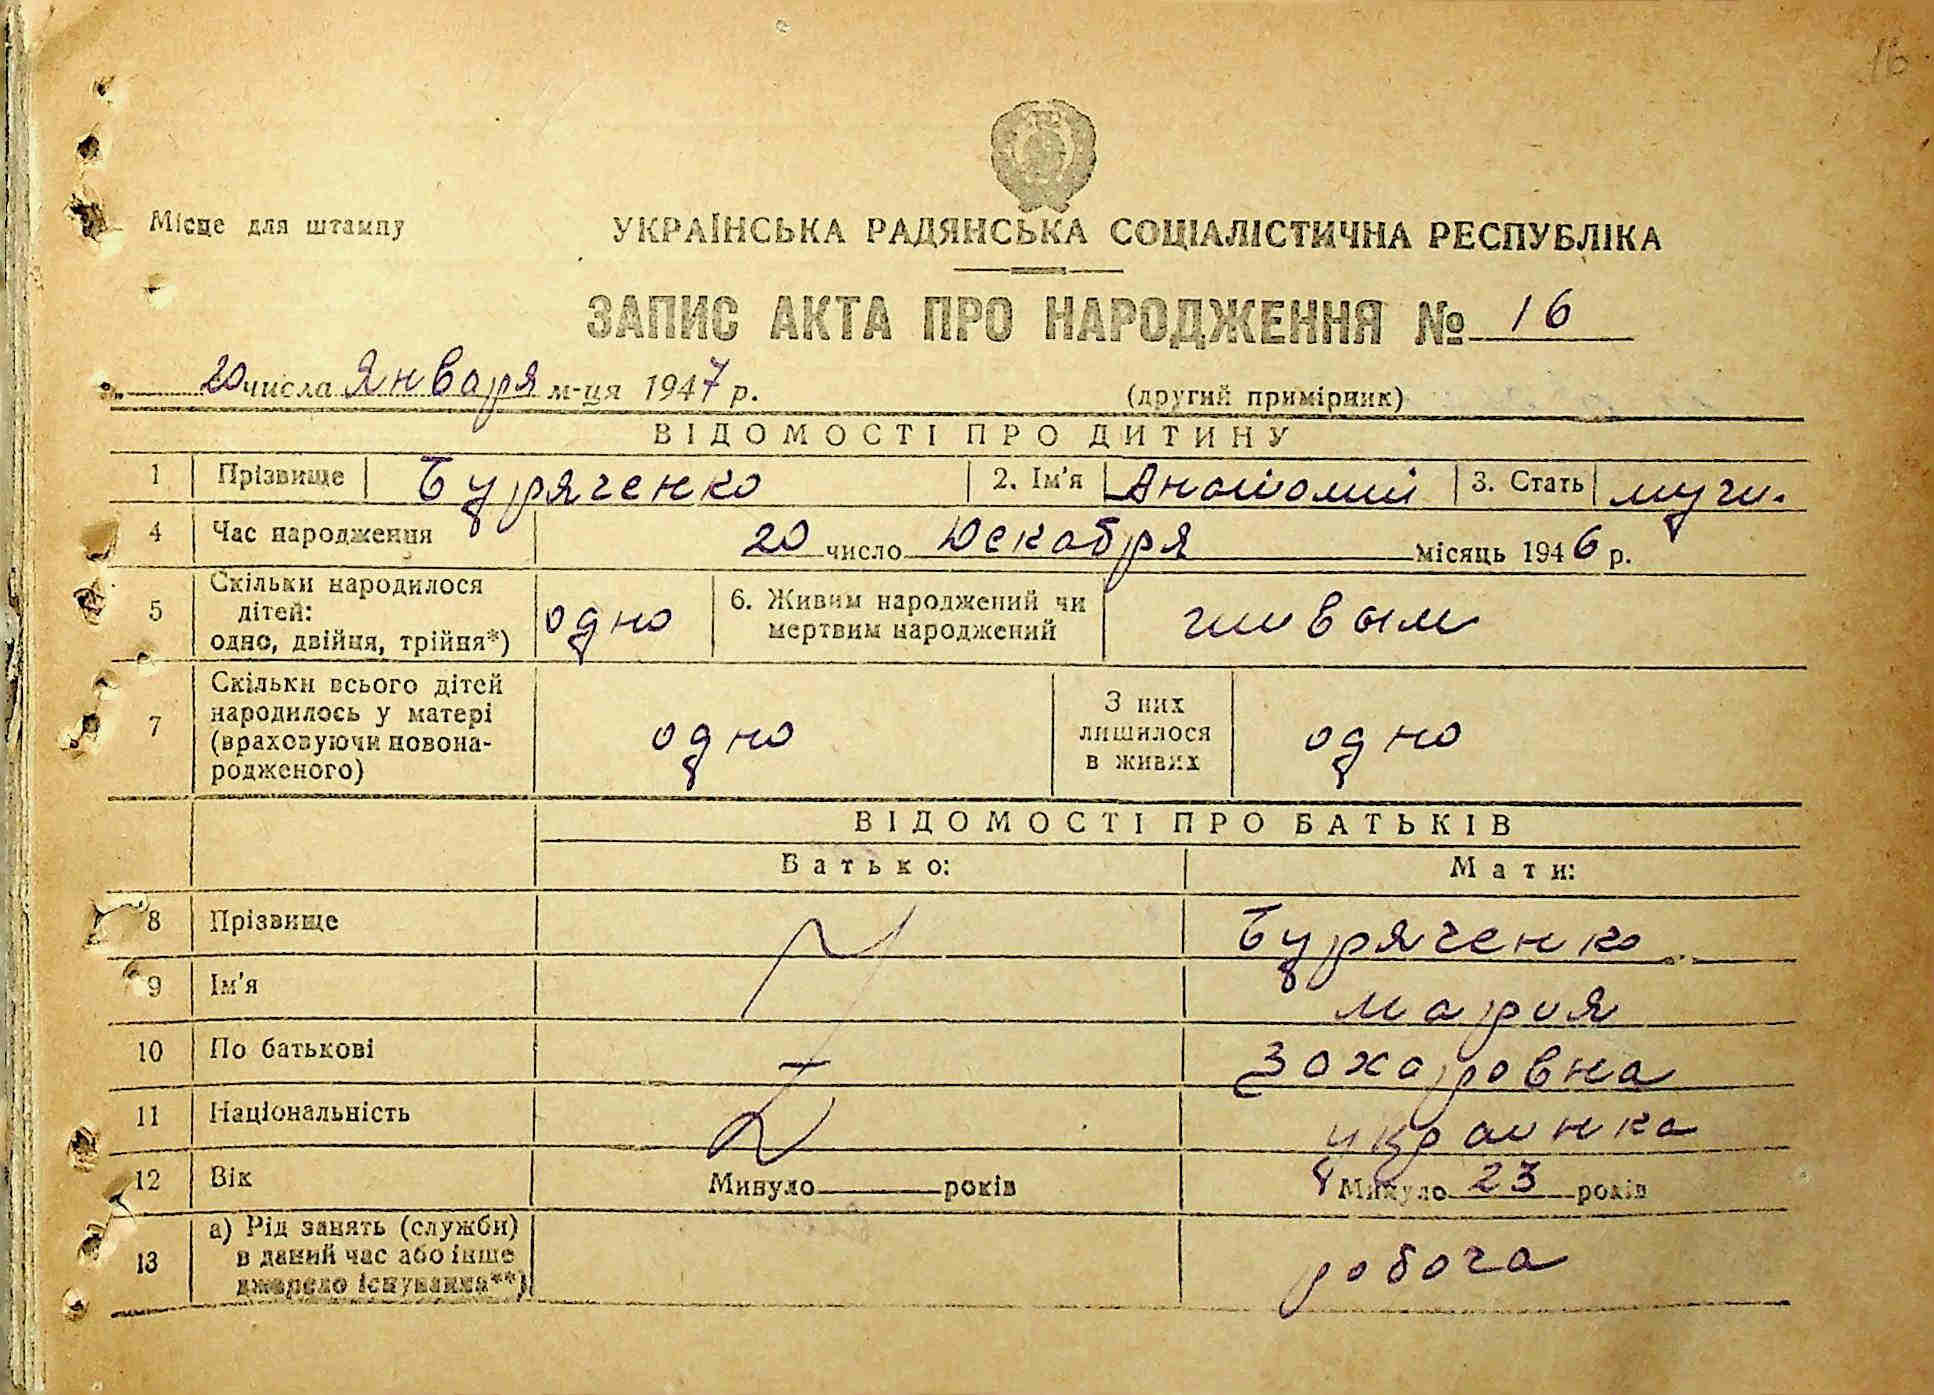 16
Місце для штампу
УКРАЇНСЬКА РАДЯНСЬКА СОЦІАЛІСТИЧНА РЕСПУБЛІКА
ЗАПИС АКТА ПРО НАРОДЖЕННЯ № 16
20 числа Января м-ця 1947 р.
(другий примірник)
ВІДОМОСТІ ПРО ДИТИНУ
1 Прізвище Буряченко 2. Ім'я Анатолий 3. Стать муж.
4 Час народження 20 число Декабря місяць 1946 р.
5 Скільки народилося дітей: одно, двійня, трійня*) одно 6. Живим народжений чи мертвим народжений живым
7 Скільки всього дітей народилось у матері (враховуючи новонародженого) одно З них лишилося в живих одно
ВІДОМОСТІ ПРО БАТЬКІВ
Батько: Мати:
8 Прізвище Буряченко
9 Ім'я Мария
10 По батькові Захаровна
11 Національність украинка
12 Вік Минуло years років Минуло 23 років
13 а) Рід занять (служби) в даний час або інше джерело існування**) робоча